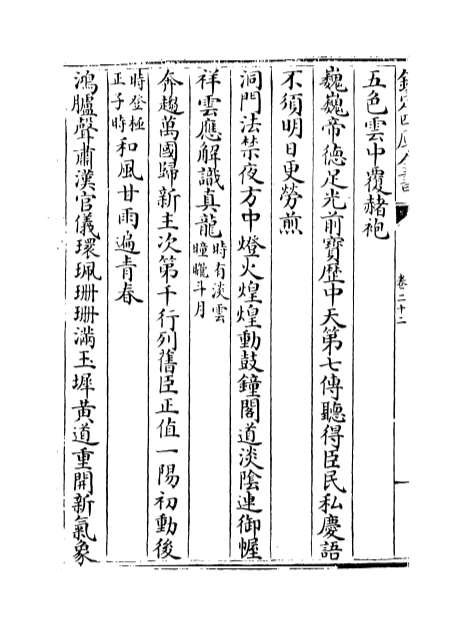 欽定四庫全書
卷二十二
五色雲中覆赭袍
巍巍帝德足光前寶歴中天第七傳聽得臣民私慶語
不須明日更勞煎
洞門法禁夜方中燈火煌煌動鼓鐘閣道淡陰連御幄
祥雲應解識真龍時有淡雲
曈曨斗月
奔趨萬國歸新主次第千行列舊臣正值一陽初動後
時登極
正子時和風甘雨遍青春
鴻臚聲肅漢官儀環珮珊珊滿玉墀黄道重開新氣象